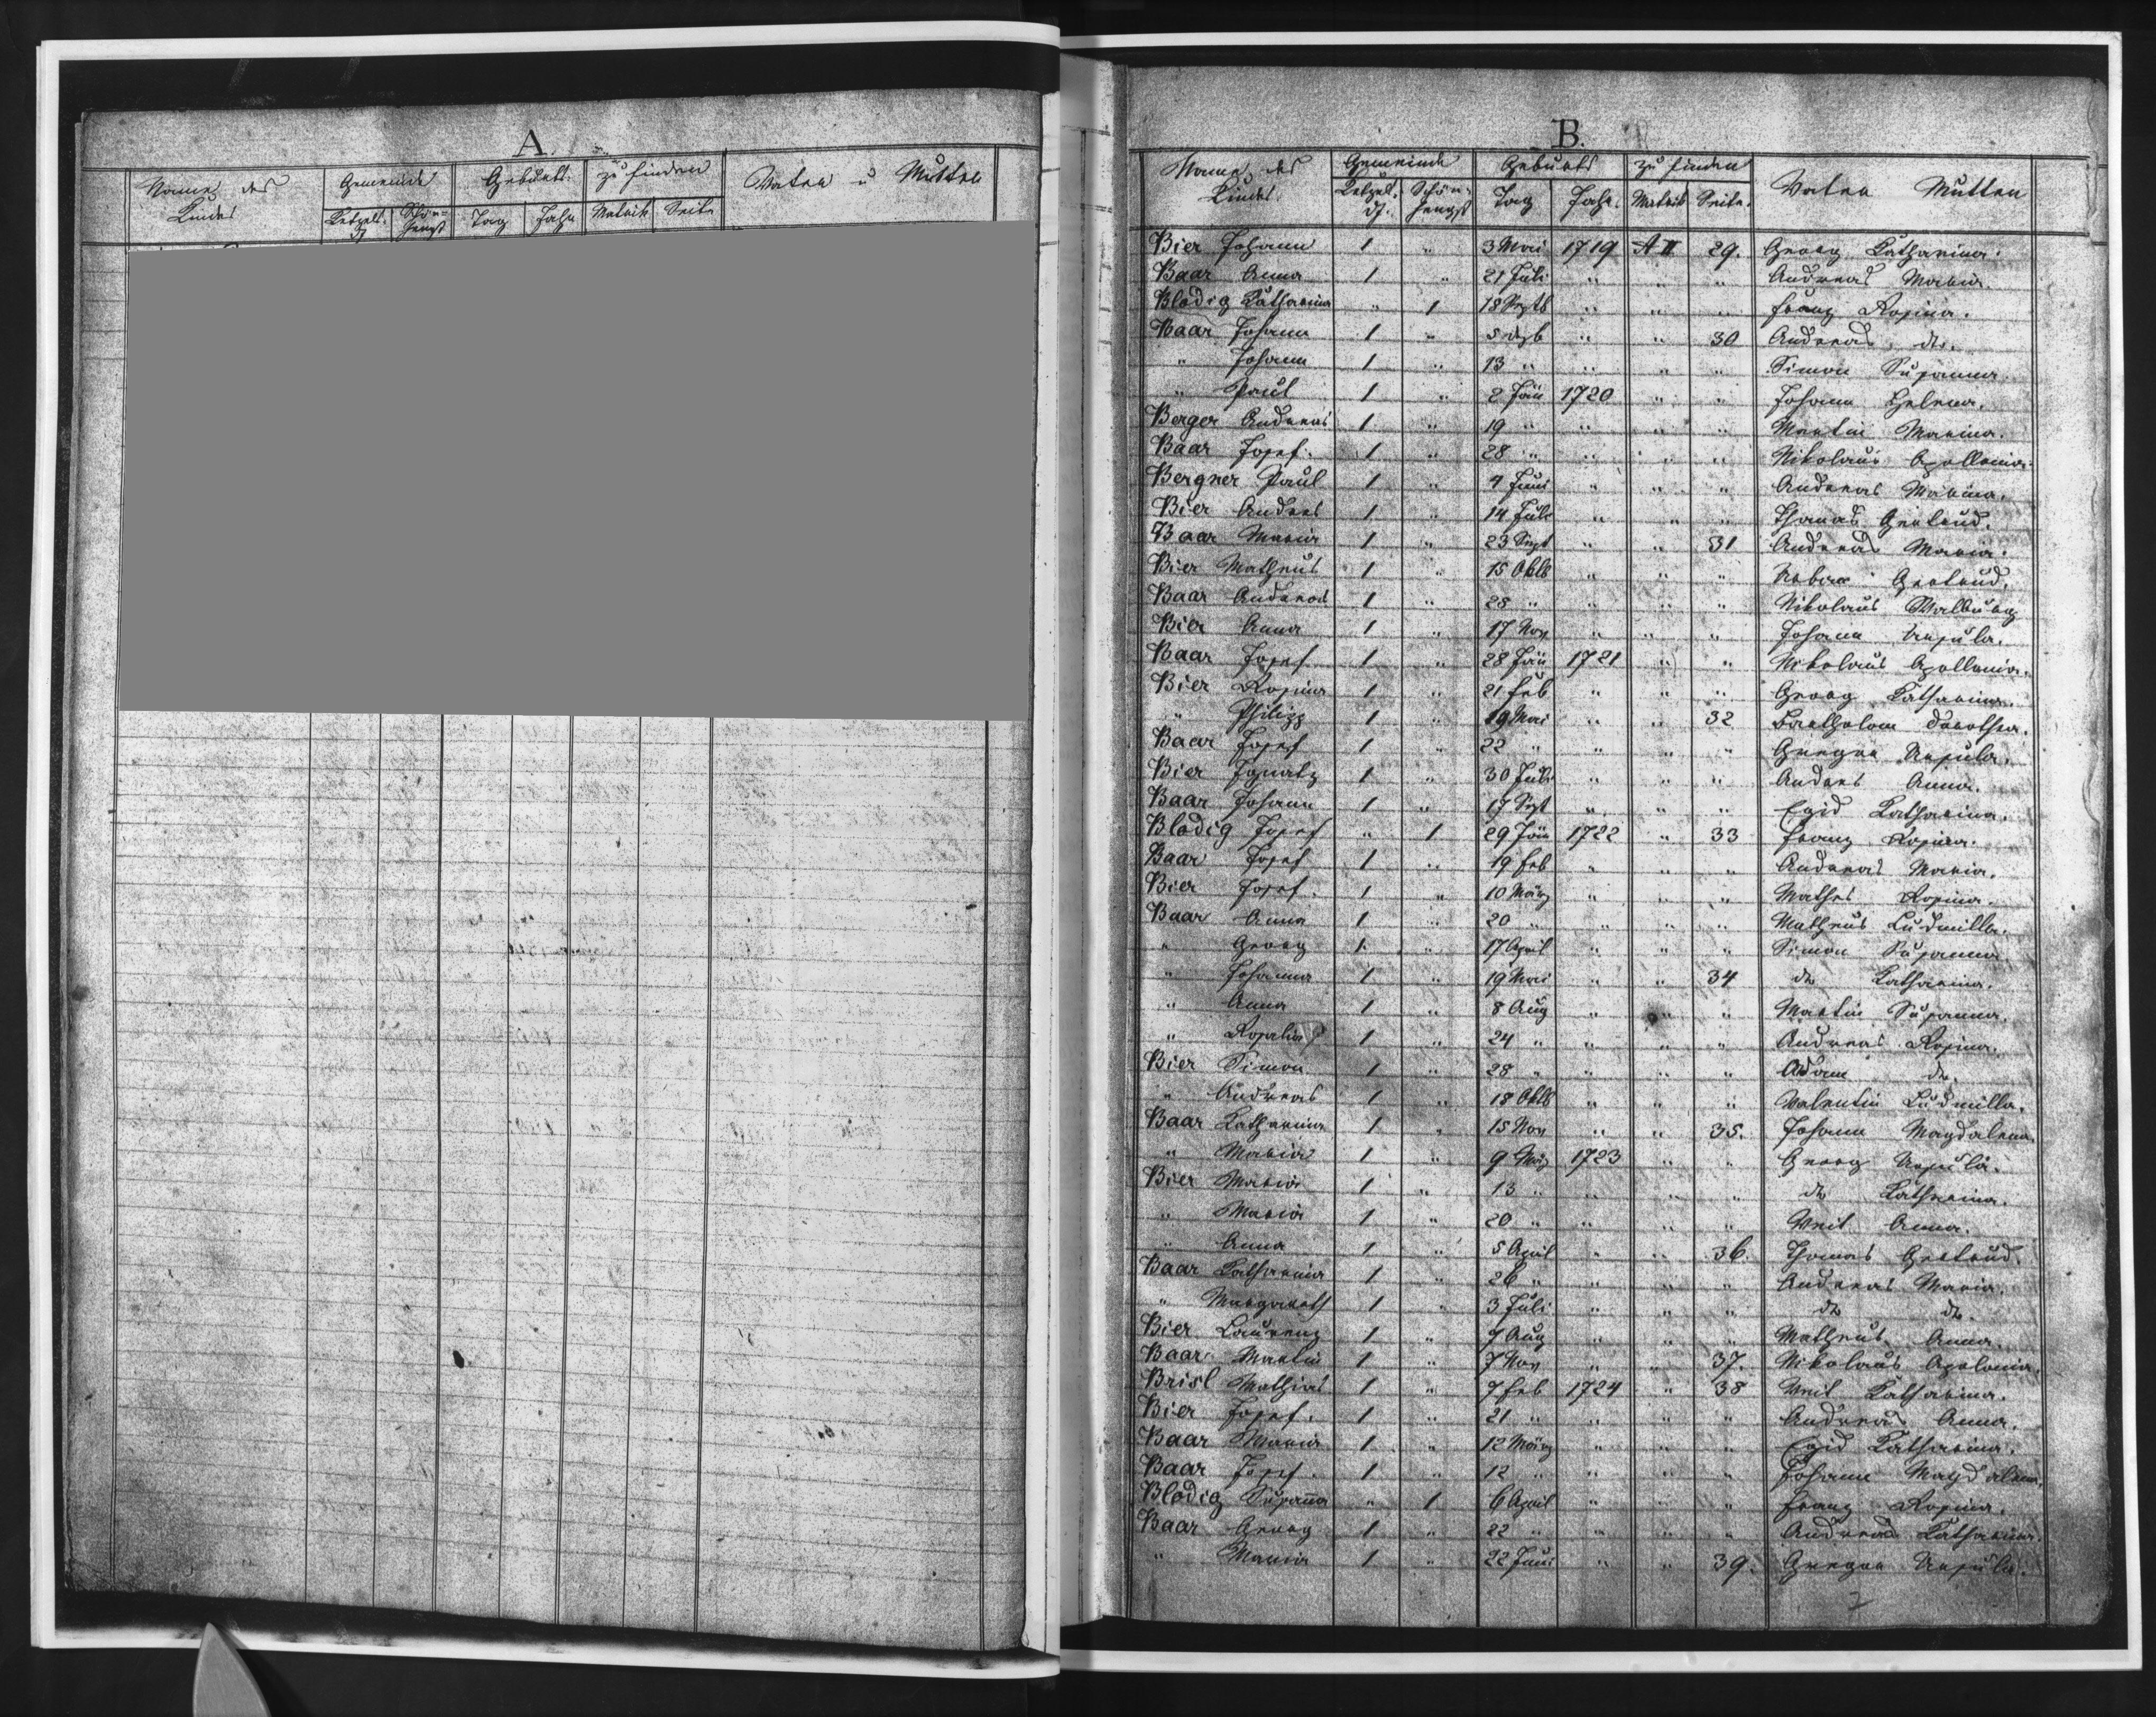 A.
Name des Kindes Gemeinde Geburts- zu finden Vater u Mutter
Ketzelsdf. Schön-hengst Tag Jahr Matrik Seite
B.
Name des Kindes. Gemeinde Geburts zu finden Vater Mutter
Ketzelsdf. Schön-hengst Tag Jahr. Matrik Seite.
Bier Johann 1 " 3 Mai 1719 A II 29. Georg Katharina.
Baar Anna 1 " 21 Juli " " " Andreas Maria.
Blodig Katharina " 1 18 Septb " " " Franz Rosina.
Baar Johann 1 " 5 dezb " " 30 Andreas, do.
" Johann 1 " 13 " " " " Simon Susanna
" Paul 1 " 2 Jän 1720 " " Johann Helena.
Berger Andreas 1 " 19 " " " " Martin Marina.
Baar Josef. 1 " 28 " " " " Nikolaus Apollonia.
Bergner Paul 1 " 4 Juni " " " Andreas Marina.
Bier Andres 1 " 14 Juli " " " Thomas Gertrud.
Baar Maria 1 " 23 Sept " " 31 Andreas Maria.
Bier Matheus 1 " 15 Oktb " " " Gertrud.
Baar Andreas 1 " 28 " " " " Nikolaus Walburg
Bier Anna 1 " 17 Nov " " " Johann Ursula.
Baar Josef 1 " 28 Jän 1721 " " Nikolaus Apollonia.
Bier Rosina 1 " 21 Feb " " " Georg Katharina.
" Philipp 1 " 19 Mai " " 32 Bartholom Dorothea.
Baar Josef 1 " 22 " " " " Gregor Ursula.
Bier Ignatz 1 " 30 Juli " " " Andres Anna.
Baar Johann 1 " 17 Sept " " " Egid Katharina.
Blodig Josef " 1 29 Jän 1722 " 33 Franz Rosina.
Baar Josef 1 " 19 Feb " " " Andreas Maria.
Bier Josef. 1 " 10 März " " " Mathes Rosina.
Baar Anna 1 " 20 " " " " Matheus Ludmilla.
" Georg 1. " 17 April " " " Simon Susanna
" Johanna 1 " 19 Mai " " 34 do Katharina.
" Anna 1 " 8 Aug " " " Martin Susanna.
" Rosalia 1 " 24 " " " " Andreas Rosina.
Bier Simon 1 " 28 " " " " Adam do.
" Andreas 1 " 18 Oktb " " " Valentin Ludmilla.
Baar Katharina 1 " 15 Nov " " 35. Johann Magdalena.
" Maria 1 " 9 März 1723 " " Georg Ursula.
Bier Maria 1 " 13 " " " " do Katharina.
" Maria 1 " 20 " " " " Veit Anna.
" Anna 1 " 5 April " " 36. Thomas Gertrud.
Baar Katharina 1 " 26 " " " " Andreas Maria.
" Margareth 1 " 3 Juli " " " do do.
Bier Laurenz 1 " 7 Aug " " " Matheus Anna.
Baar Martin 1 " 7 Nov " " 37. Nikolaus Apolonia.
Brisl Mathias 1 " 7 Feb 1724 " 38 Veit Katharina.
Bier Josef. 1 " 21 " " " " Andreas Anna.
Baar Maria 1 " 12 März " " " Egid Katharina.
Baar Josef. 1 " 12 " " " " Johann Magdalena.
Blodig Susanna " 1 6 April " " " Franz Rosina.
Baar Georg 1 " 22 " " " " Andreas Katharina.
" Maria 1 " 22 Juni " " 39. Gregor Ursula.
2